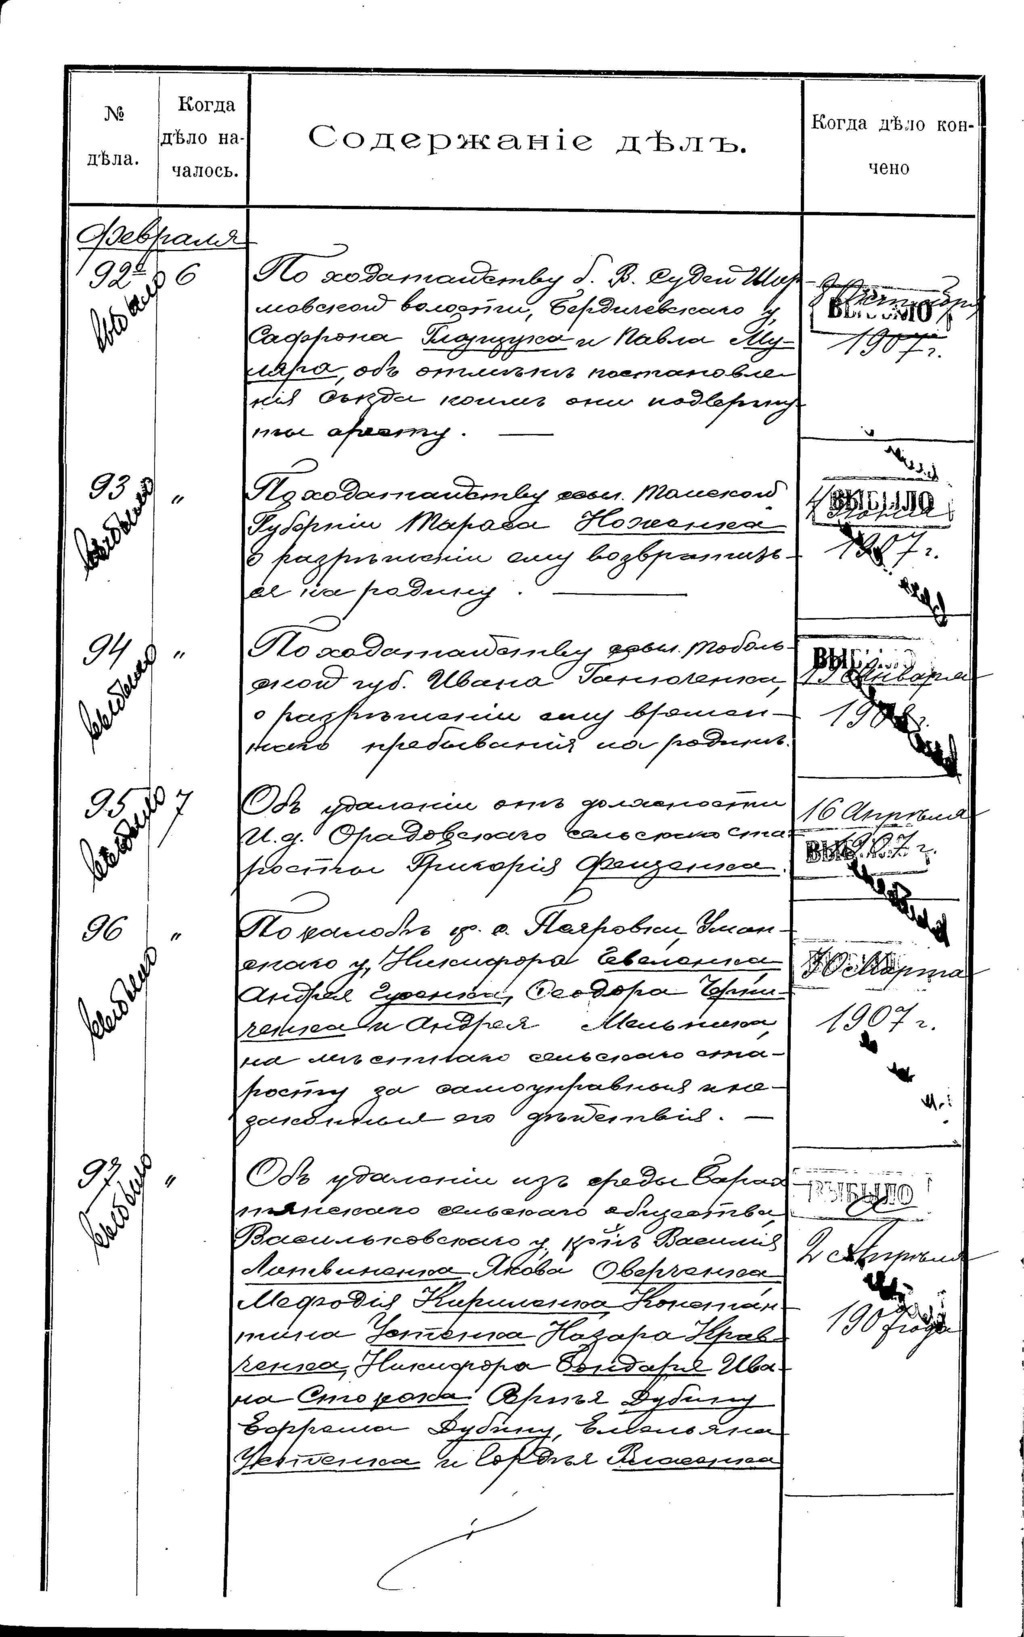 №
дѣла.
Когда
дѣло на-
чалось.
Содержаніе дѣлъ.
Когда дѣло кон-
чено
Февраля
92а
6
выбыло
По ходатайству б. В. Судей
мовской волости, Бердичевскаго у,
Сафрона и Павла Му-
ляра, объ отмѣнѣ постановле-
нія Съѣзда коимъ они подвергну-
ты аресту. —
8 Октября
ВЫБЫЛО
1907 г.
93
"
выбыло
По ходатайству ссыл. Томской
Губерніи Тараса Ноженка
о разрѣшеніи ему возвратить-
ся на родину. —
ВЫБЫЛО
4
1907 г.
94
"
выбыло
По ходатайству ссыл. Тоболь-
ской губ. Ивана Ганюченка,
о разрѣшеніи ему времен-
наго пребыванія на родинѣ.
ВЫБЫЛО
19 Января
1908 г.
95
7
выбыло
Объ удаленіи отъ должности
И. д. Орадовскаго сельскаго ста-
росты Григорія
16 Апрѣля
1907 г.
ВЫБЫЛО
96
"
выбыло
По жалобѣ кр. с. Уман-
скаго у, Никифора Евсленка
Андрея Ѳеодора Чрни-
ченка и Андрея Мельника,
на мѣстнаго сельскаго ста-
росту за самоуправныя и не-
законныя его дѣйствія. —
30 Марта
1907 г.
97
"
выбыло
Объ удаленіи изъ среды Барах-
тянскаго сельскаго общества,
Васильковскаго у, кр-нъ Василія
Литвиненка, Якова Оверченка
Меѳодія Кириленка, Констан-
тина Устенка Назара Крав-
ченка, Никифора Бондаря Ива-
на Сторожа Сергѣя Дубину
Ефрема Дубину, Емельяна
Устенка и Сергѣя Власенка
ВЫБЫЛО
2 Апрѣля
1907 года